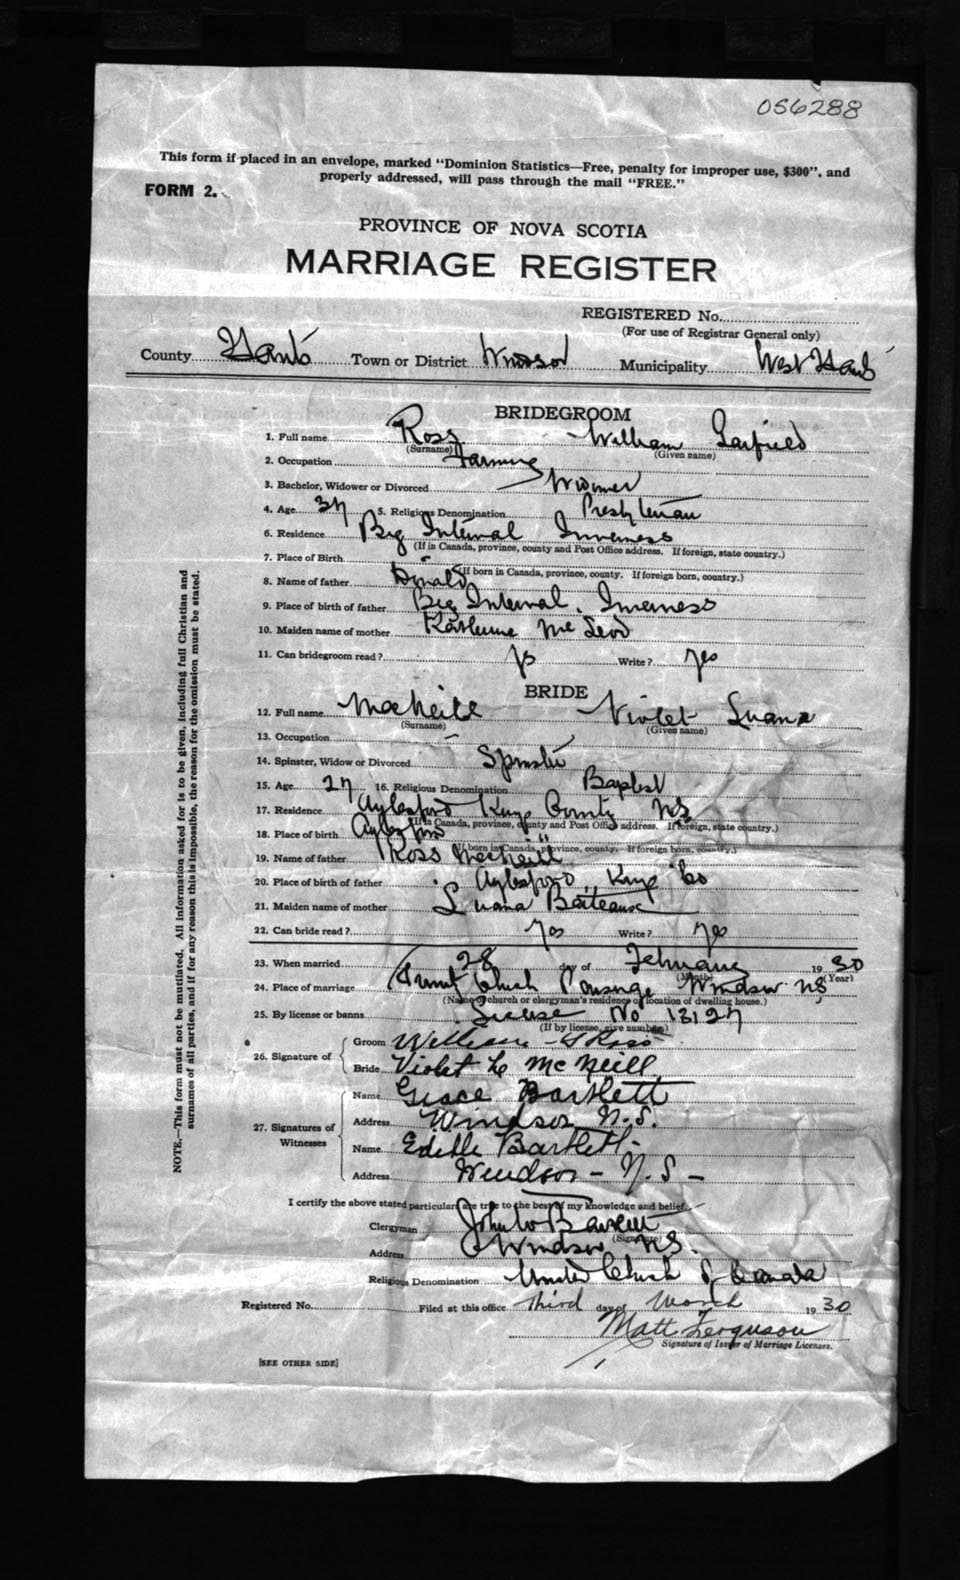 056288
This form if placed in an envelope, marked "Dominion Statistics—Free, penalty for improper use, $300", and
properly addressed, will pass through the mail "FREE."
FORM 2.
PROVINCE OF NOVA SCOTIA
MARRIAGE REGISTER
REGISTERED No.
(For use of Registrar General only)
County Hants Town or District Windsor Municipality West Hants
BRIDEGROOM
1. Full name Ross William Garfield
(Surname) (Given name)
2. Occupation Farming
3. Bachelor, Widower or Divorced Widower
4. Age 37 5. Religious Denomination Presbyterian
6. Residence Big Interval Inverness
(If in Canada, province, county and Post Office address. If foreign, state country.)
7. Place of Birth "
(If born in Canada, province, county. If foreign born, country.)
8. Name of father Donald
9. Place of birth of father Big Interval. Inverness
10. Maiden name of mother Katherine McLeod
11. Can bridegroom read? yes Write? yes
BRIDE
12. Full name MacNeill Violet Luana
(Surname) (Given name)
13. Occupation —
14. Spinster, Widow or Divorced Spinster
15. Age 27 16. Religious Denomination Baptist
17. Residence Aylesford Kings County NS
(If in Canada, province, county and Post Office address. If foreign, state country.)
18. Place of birth Aylesford "
(If born in Canada, province, county. If foreign born, country.)
19. Name of father Ross MacNeill
20. Place of birth of father Aylesford, Kings Co
21. Maiden name of mother Luana
22. Can bride read? Yes Write? yes
23. When married 28 day of February 1930
(Month) (Year)
24. Place of marriage Church Parsonage Windsor NS
(Name of church or clergyman's residence or location of dwelling house.)
25. By license or banns License No 13127
(If by license, give number)
26. Signature of
Groom William G Ross
Bride Violet L. McNeill
27. Signatures of Witnesses
Name Grace Bartlett
Address Windsor N.S.
Name Edith Bartlett.
Address Windsor – N.S –
I certify the above stated particulars are true to the best of my knowledge and belief.
Clergyman John W Bartlett
(Signature)
Address Windsor NS.
Religious Denomination United Church of Canada
Registered No. Filed at this office third day of March 1930
Matt Ferguson
Signature of Issuer of Marriage Licenses.
[SEE OTHER SIDE]
NOTE.—This form must not be mutilated. All information asked for is to be given, including full Christian and
surnames of all parties, and if for any reason this is impossible, the reason for the omission must be stated.